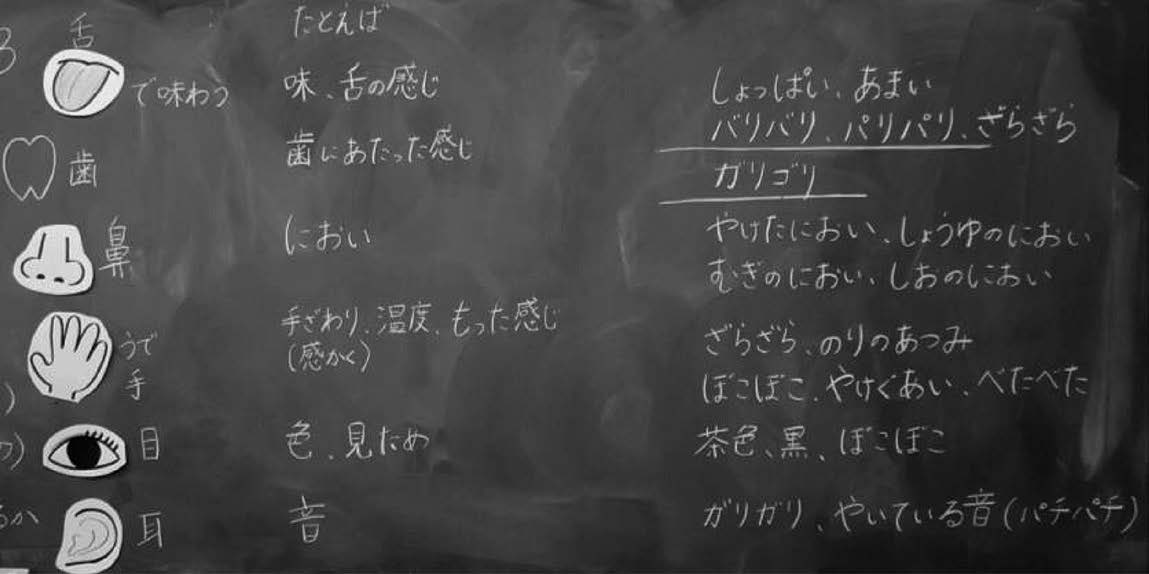 舌 たとえば
で味わう 味、舌の感じ しょっぱい、あまい
バリバリ、パリパリ、ざらざら
歯 歯にあたった感じ
ガリゴリ
鼻 におい やけたにおい、しょうゆのにおい
むぎのにおい、しおのにおい
うで 手ざわり、温度、もった感じ
手 (感かく) ざらざら、のりのあつみ
ぼこぼこ、やけぐあい、べたべた
目 色、見ため 茶色、黒、ぼこぼこ
耳 音 ガリガリ、やいている音(パチパチ)